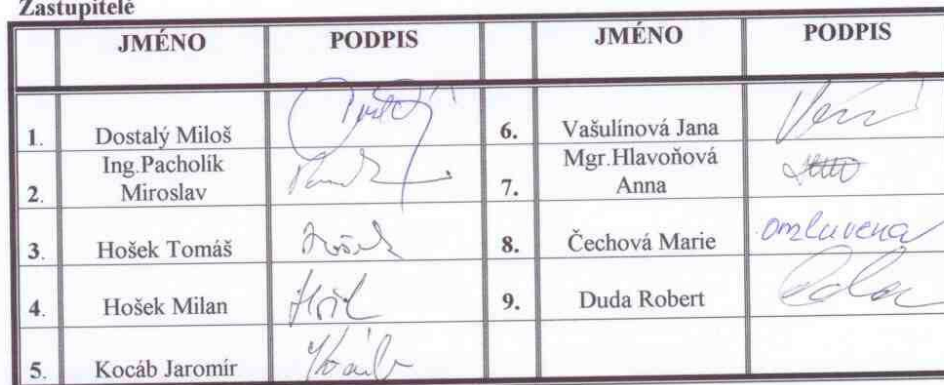 Zastupitelé
JMÉNO PODPIS JMÉNO PODPIS
1. Dostalý Miloš 6. Vašulínová Jana
2. Ing.Pacholík Miroslav 7. Mgr.Hlavoňová Anna
3. Hošek Tomáš Hošek 8. Čechová Marie omluvena
4. Hošek Milan 9. Duda Robert
5. Kocáb Jaromír